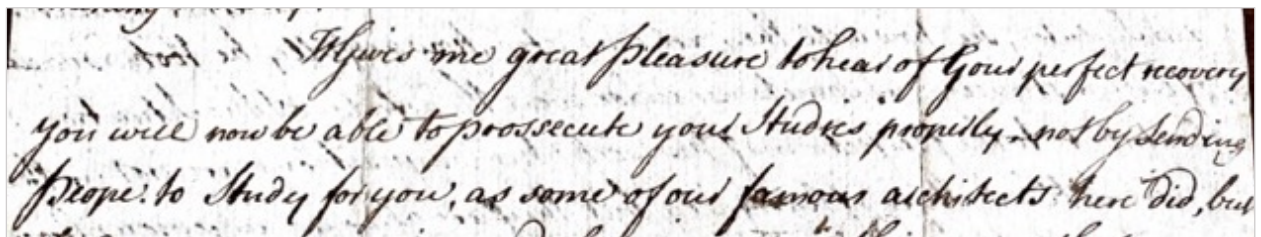 It Gives me great pleasure to hear of your perfect recovery
you will now be able to prossecute your Studies properly. not by sending
Peope. to Study for you, as some of our famous architects here did, but